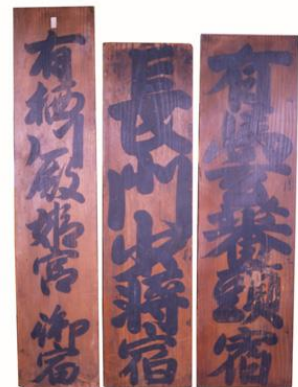 有馬玄蕃頭宿
長門少将宿
有栖川殿姫宮御宿